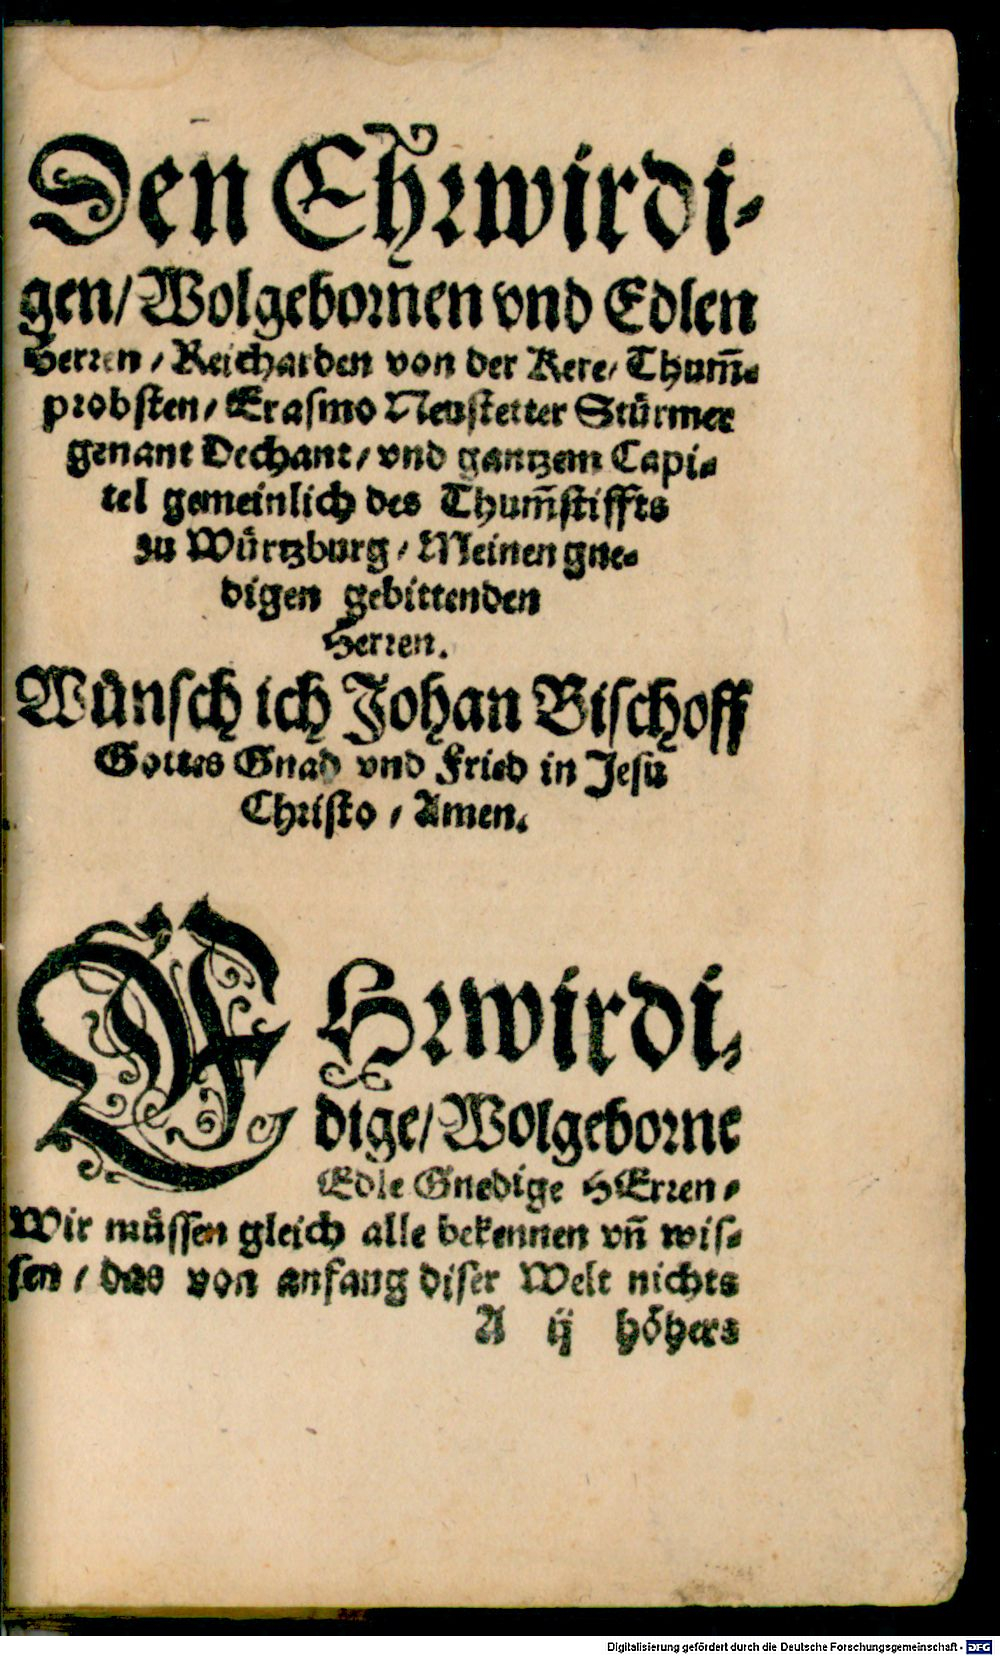 Den Ehrwirdi-
gen/ Wolgebornen vnd Edlen
Herren/ Reicharden von der Kere/ Thum̄-
probsten/ Erasmo Neustetter Stürmer
genant Dechant/ vnd gantzem Capi-
tel gemeinlich des Thum̄stiffts
zu Würtzburg/ Meinen gne-
digen gebittenden
Herren.
Wünsch ich Johan Bischoff
Gottes Gnad vnd Fried in Jesu
Christo/ Amen.
EHrwirdi-
dige/ Wolgeborne
Edle Gnedige HErren/
Wir müssen gleich alle bekennen vn̄ wis-
sen/ das von anfang diser Welt nichts
A ij höhers
Digitalisierung gefördert durch die Deutsche Forschungsgemeinschaft - DFG